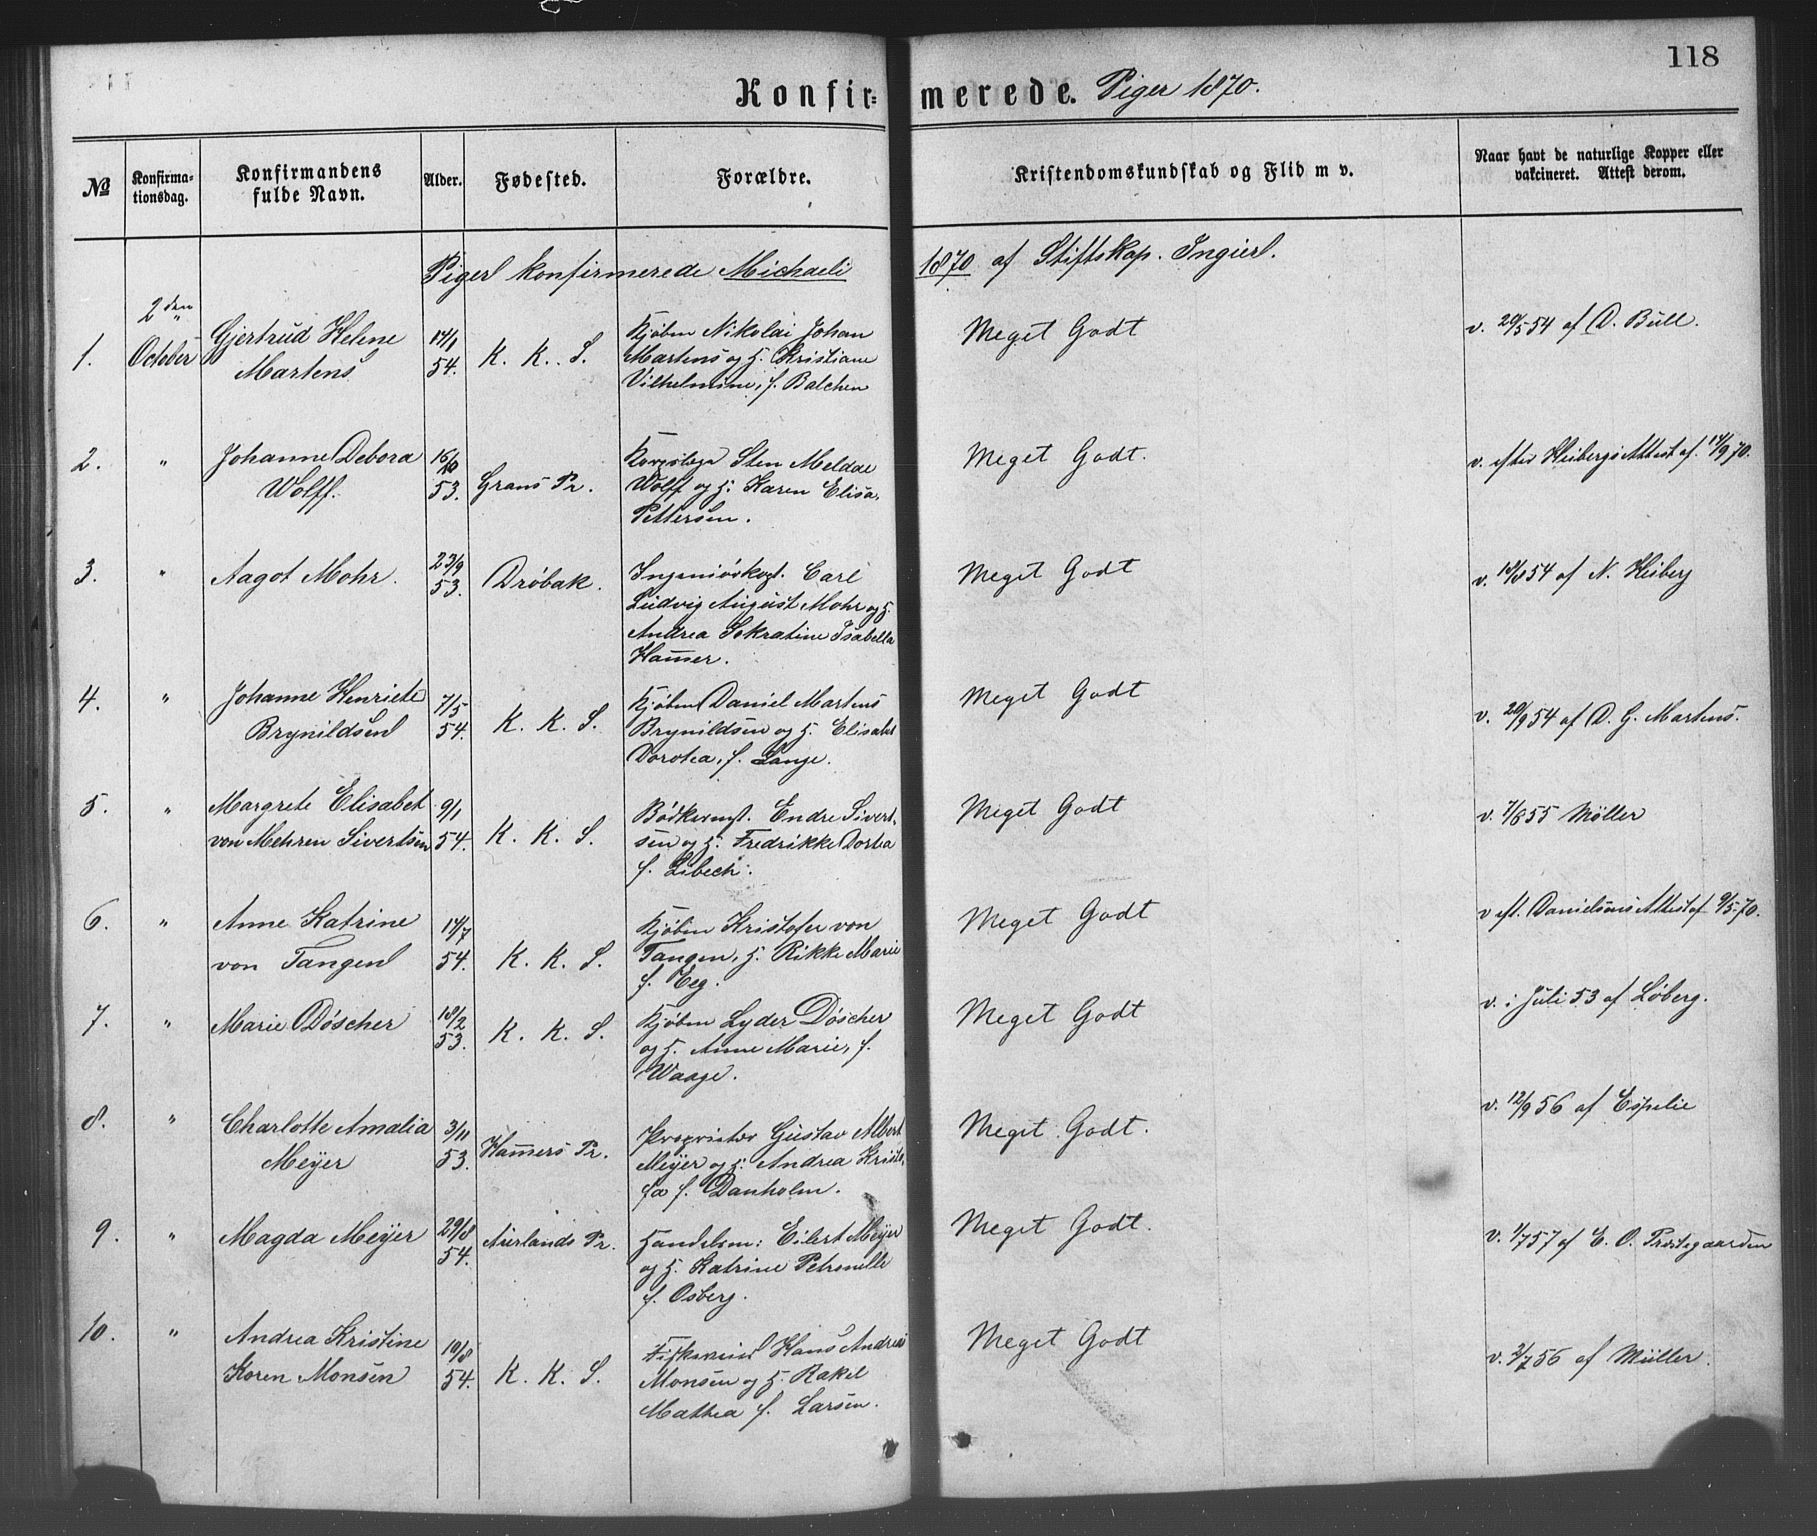 118
Konfirmerede. Piger 1870.
No
Konfirma-
tionsdag.
Konfirmandens
fulde Navn.
Alder.
Fødested.
Forældre.
Kristendomskundskab og Flid m v.
Naar havt de naturlige Kopper eller
vakcineret. Attest derom.
Piger konfirmerede Michaeli 1870 af Stiftskap. Ingier.
1.
2den
October
Gjertrud Helene
Martens
14/1
54.
K. K. S.
Kjøbm Nikolai Johan
Martens og H. Kristiane
Vilhelmine, f. Balchen
Meget Godt
v. 20/5 54 af D. Bull.
2.
"
Johanne Debora
Wolff.
53.
Grans Pr.
Korpslæge Sten Meldae
Wolff og H. Karen Elisa,
Pettersen.
Meget Godt.
v. efter Heibergs Attest af 14/9 70.
3.
"
Aagot Mohr.
23/9
53.
Drøbak.
Ingeniørkapt. Carl
Ludvig August Mohr og H.
Andrea Sokratine Isabella
Ham̄er.
Meget Godt
v. 18/8 54 af N. Heiberg
4.
"
Johanne Henriete
Brynildsen
7/5
54.
K. K. S.
Kjøbm Daniel Martens
Brynildsen og H. Elisabet
Dorotea, f. Lange.
Meget Godt
v. 20/9 54 af D. G. Martens.
5.
"
Margrete Elisabet
von Mehren Sivertsen
9/1
54.
K. K. S.
Bødkermst. Endre Sivert-
sen og H. Fredrikke Dortea
f. Libech.
Meget Godt
v. 7/8 55 Møller
6.
"
Anne Katrine
von Tangen
14/7
54.
K. K. S.
Kjøbm Kristofer von
Tangen, H. Rikke Marie
f. Eeg.
Meget Godt
v eft. Danielsens Attest af 9/5 70.
7.
"
Marie Døscher
18/2
53.
K. K. S.
Kjøbm Lyder Døscher
og H. Anne Marie, f.
Waage.
Meget Godt
v. i Juli 53 af Løberg.
8.
"
Charlotte Amalia
Meyer
3/11
53.
Ham̄ers Pr.
Proprietær Gustav Albert
Meyer og H. Andrea Kristo-
fa f. Danholm.
Meget Godt.
v. 12/9 56 af Espelie
9.
"
Magda Meyer
29/8
54.
Aurlands Pr.
Handelsm: Eilert Meyer
og H. Katrine Petronelle
f. Osberg.
Meget Godt.
v. 1/7 57 af E. O. Prestegaarden
10.
"
Andrea Kristine
Koren Monsen
10/8
54.
K. K. S.
Hans Andreas
Monsen og H. Rakel
Mathea f. Larsen.
Meget Godt
v. 2/7 56 af Müller.